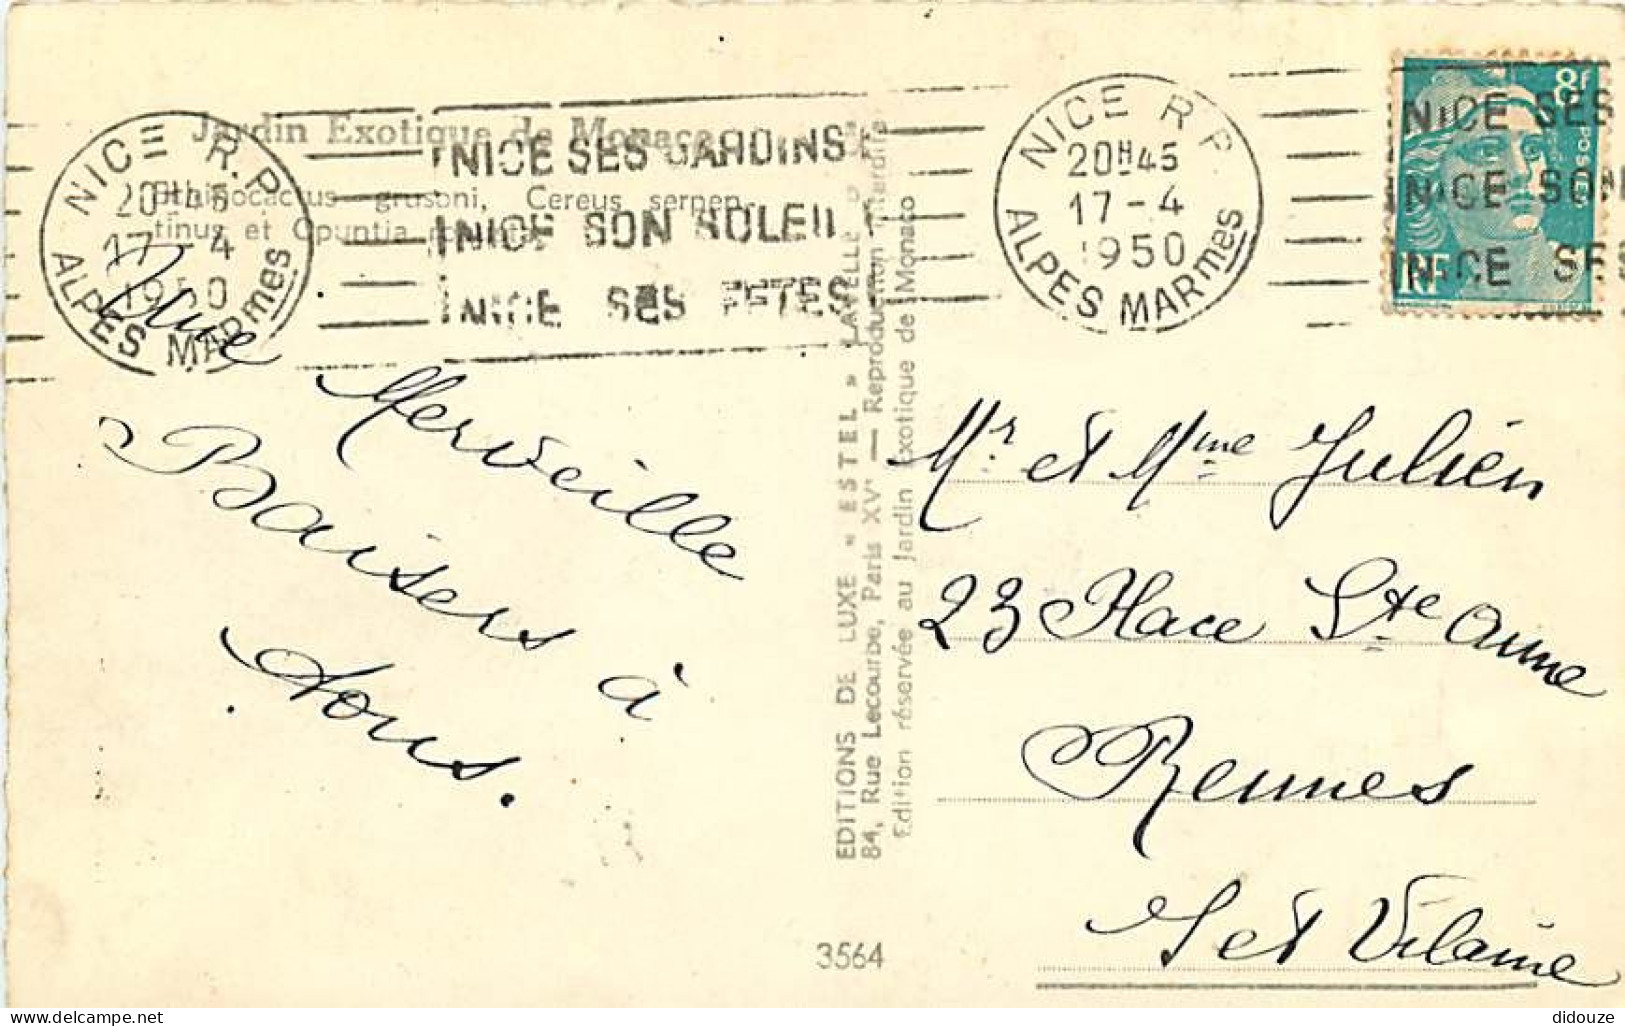 Jardin Exotique de Monaco
Ethinocactus grusoni, Cereus serpen-
tinus et Opuntia
NICE R.P.
20H45
17-4
1950
ALPES MARmes
NICE SES JARDINS
NICE SON SOLEIL
NICE SES FETES
NICE R.P.
20H45
17-4
1950
ALPES MARmes
NICE SES
NICE SON
NICE SES
8F
POSTES
RF
Une
Merveille
Baisers à
tous.
EDITIONS DE LUXE « ESTEL » LAVELLE
84, Rue Lecourbe, Paris XV — Reproduction interdite
Edition réservée au Jardin Exotique de Monaco
3564
Mr et Mme Julien
23 Place Ste Anne
Rennes
I et Vilaine
didouze
delcampe.net